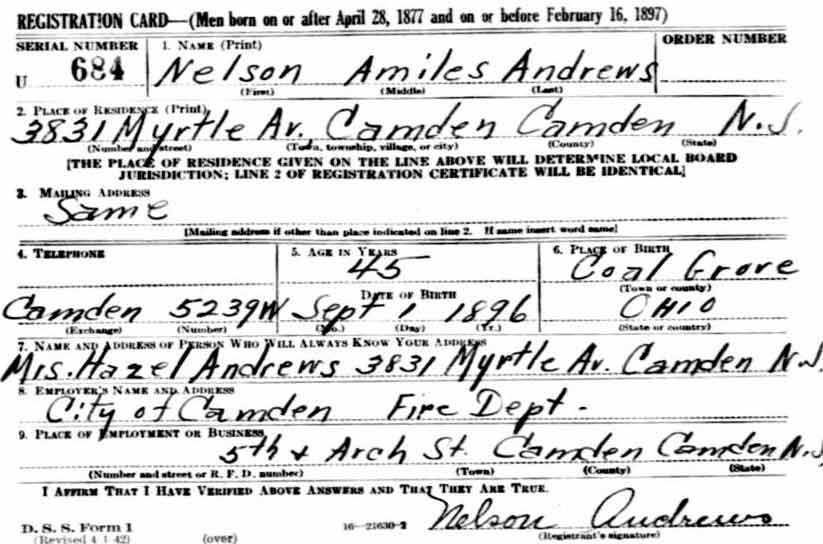 REGISTRATION CARD—(Men born on or after April 28, 1877 and on or before February 16, 1897)
SERIAL NUMBER 1. NAME (Print) ORDER NUMBER
U 684 Nelson Amiles Andrews
(First) (Middle) (Last)
2. PLACE OF RESIDENCE (Print)
3831 Myrtle Av. Camden Camden N.J.
(Number and street) (Town, township, village, or city) (County) (State)
[THE PLACE OF RESIDENCE GIVEN ON THE LINE ABOVE WILL DETERMINE LOCAL BOARD
JURISDICTION; LINE 2 OF REGISTRATION CERTIFICATE WILL BE IDENTICAL]
3. MAILING ADDRESS
Same
[Mailing address if other than place indicated on line 2. If same insert word same]
4. TELEPHONE 5. AGE IN YEARS 6. PLACE OF BIRTH
45 Coal Grove
DATE OF BIRTH (Town or county)
Camden 5239W Sept 1 1896 OHIO
(Exchange) (Number) (Mo.) (Day) (Yr.) (State or country)
7. NAME AND ADDRESS OF PERSON WHO WILL ALWAYS KNOW YOUR ADDRESS
Mrs. Hazel Andrews 3831 Myrtle Av. Camden N.J.
8. EMPLOYER'S NAME AND ADDRESS
City of Camden Fire Dept.
9. PLACE OF EMPLOYMENT OR BUSINESS
5th + Arch St. Camden Camden N.J.
(Number and street or R. F. D. number) (Town) (County) (State)
I AFFIRM THAT I HAVE VERIFIED ABOVE ANSWERS AND THAT THEY ARE TRUE.
D. S. S. Form 1 16—21630-2 Nelson Andrews
(Revised 4-1-42) (over) (Registrant's signature)